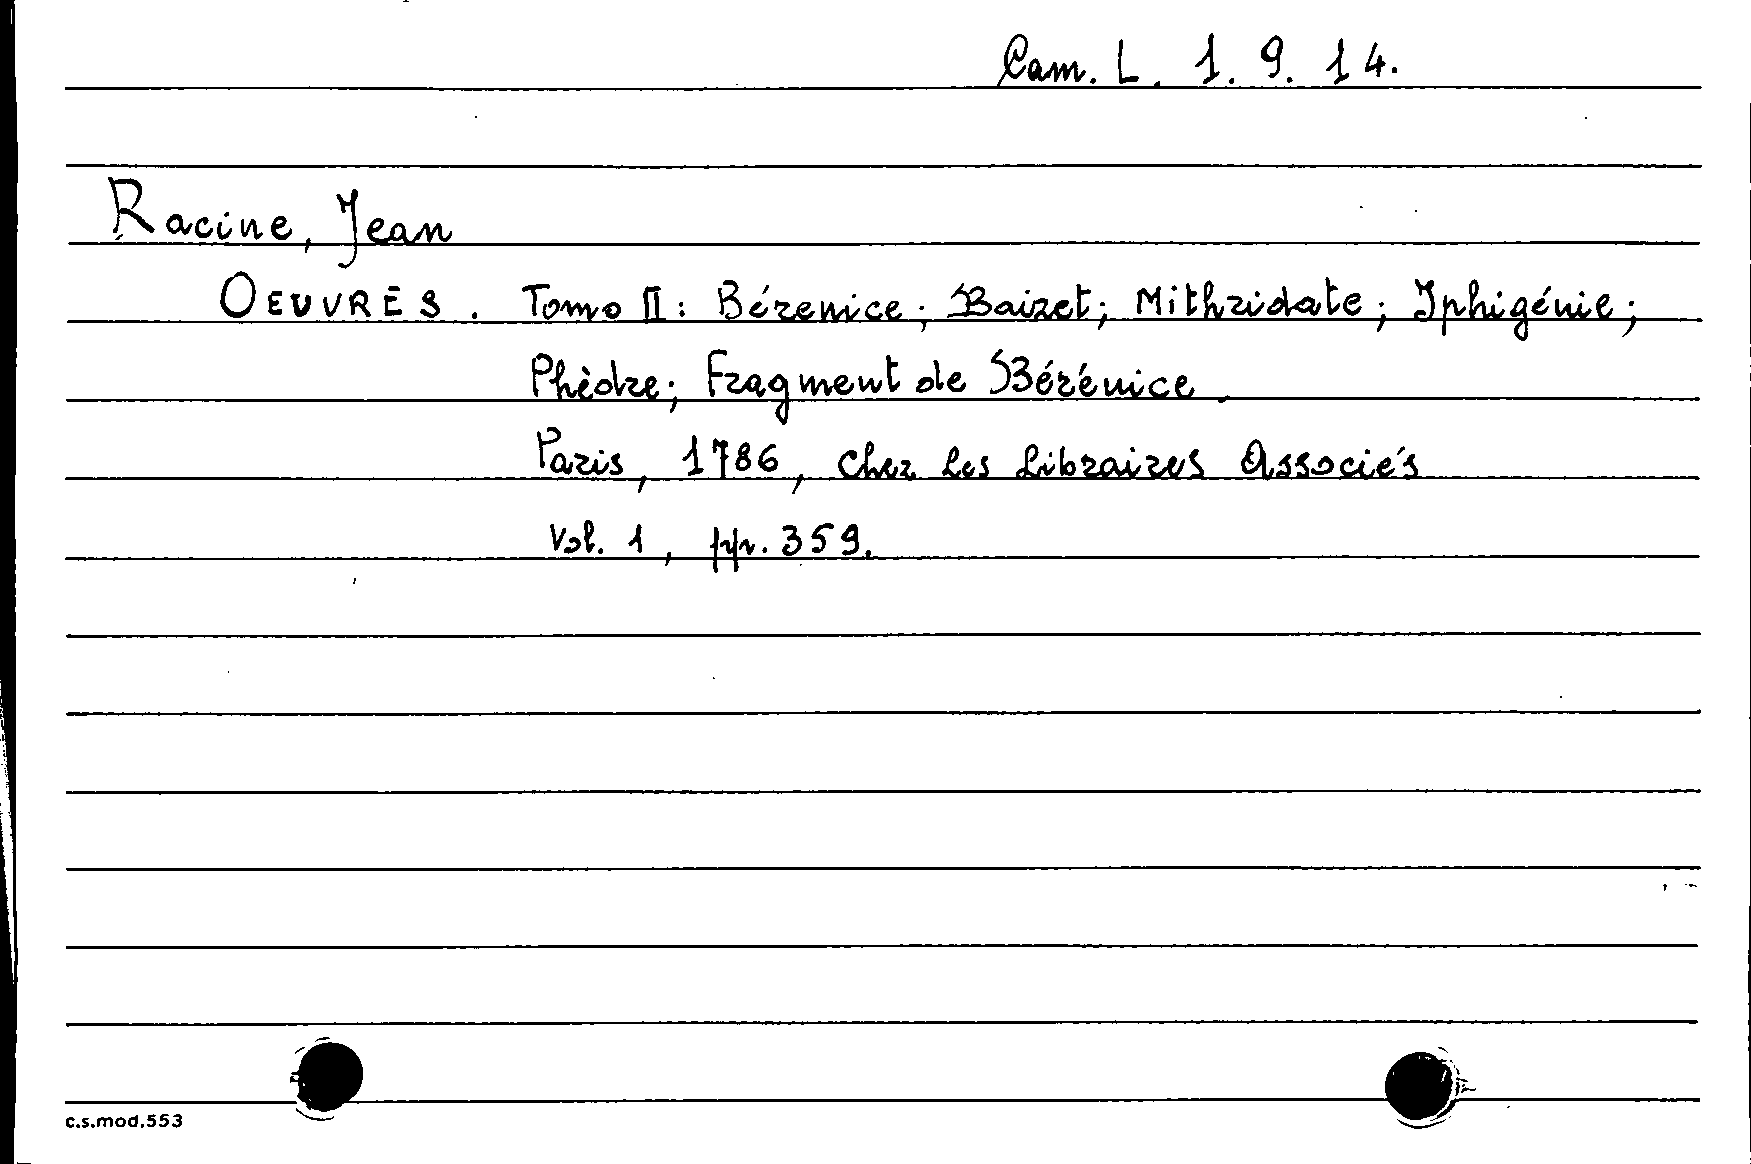 Cam. L. 1. 9. 14.
Racine, Jean
OEUVRES. Tomo II: Bérenice; Baizet; Mithridate; Iphigénie;
Phèdre; Fragment de Bérénice.
Paris, 1786, chez les Libraires Associés
Vol. 1, pp. 359.
c.s.mod.553